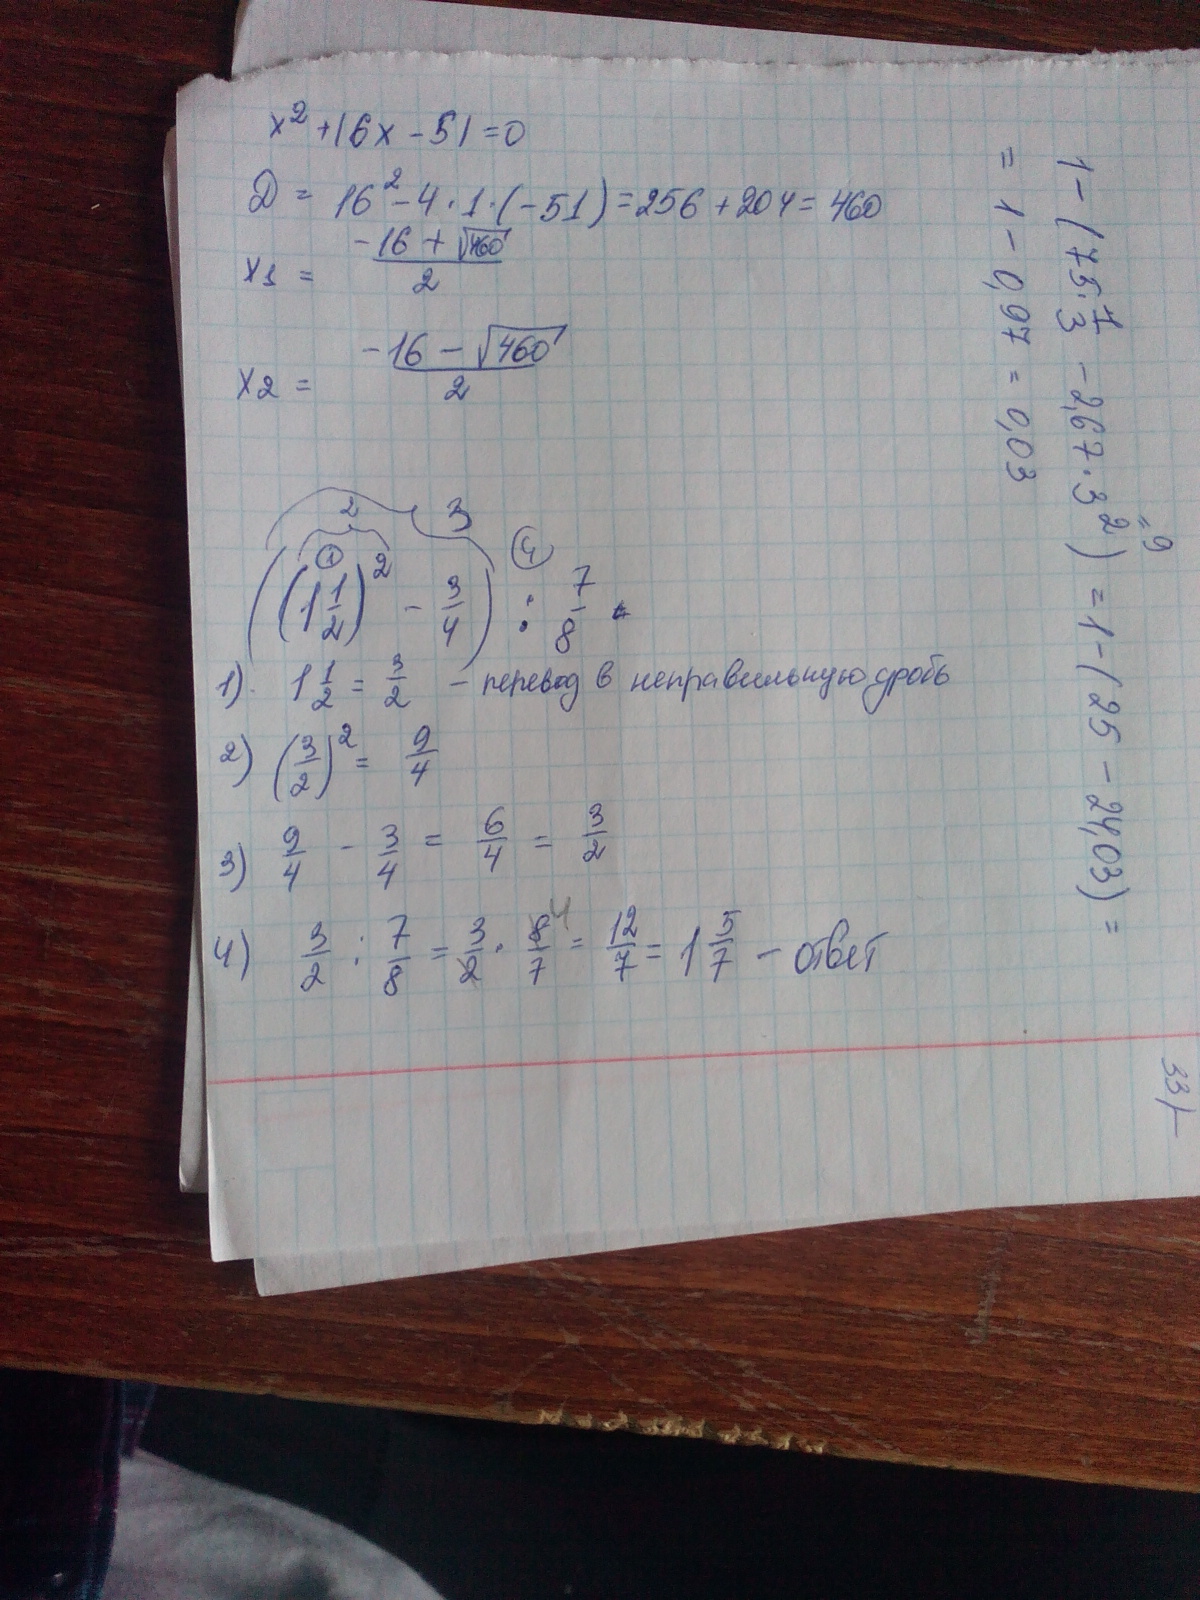 x² + 16x - 51 = 0
D = 16² - 4 · 1 · (-51) = 256 + 204 = 460
x1 = (-16 + √460)/2
x2 = (-16 - √460)/2
2 3
1 4
((1 1/2)² - 3/4) : 7/8
1). 1 1/2 = 3/2 - перевод в неправильную дробь
2) (3/2)² = 9/4
3) 9/4 - 3/4 = 6/4 = 3/2
4) 3/2 : 7/8 = 3/2 · 8/7 4 = 12/7 = 1 5/7 - ответ
=9
1 - (75 · 1/3 - 2,67 · 3²) = 1 - (25 - 24,03) =
= 1 - 0,97 = 0,03